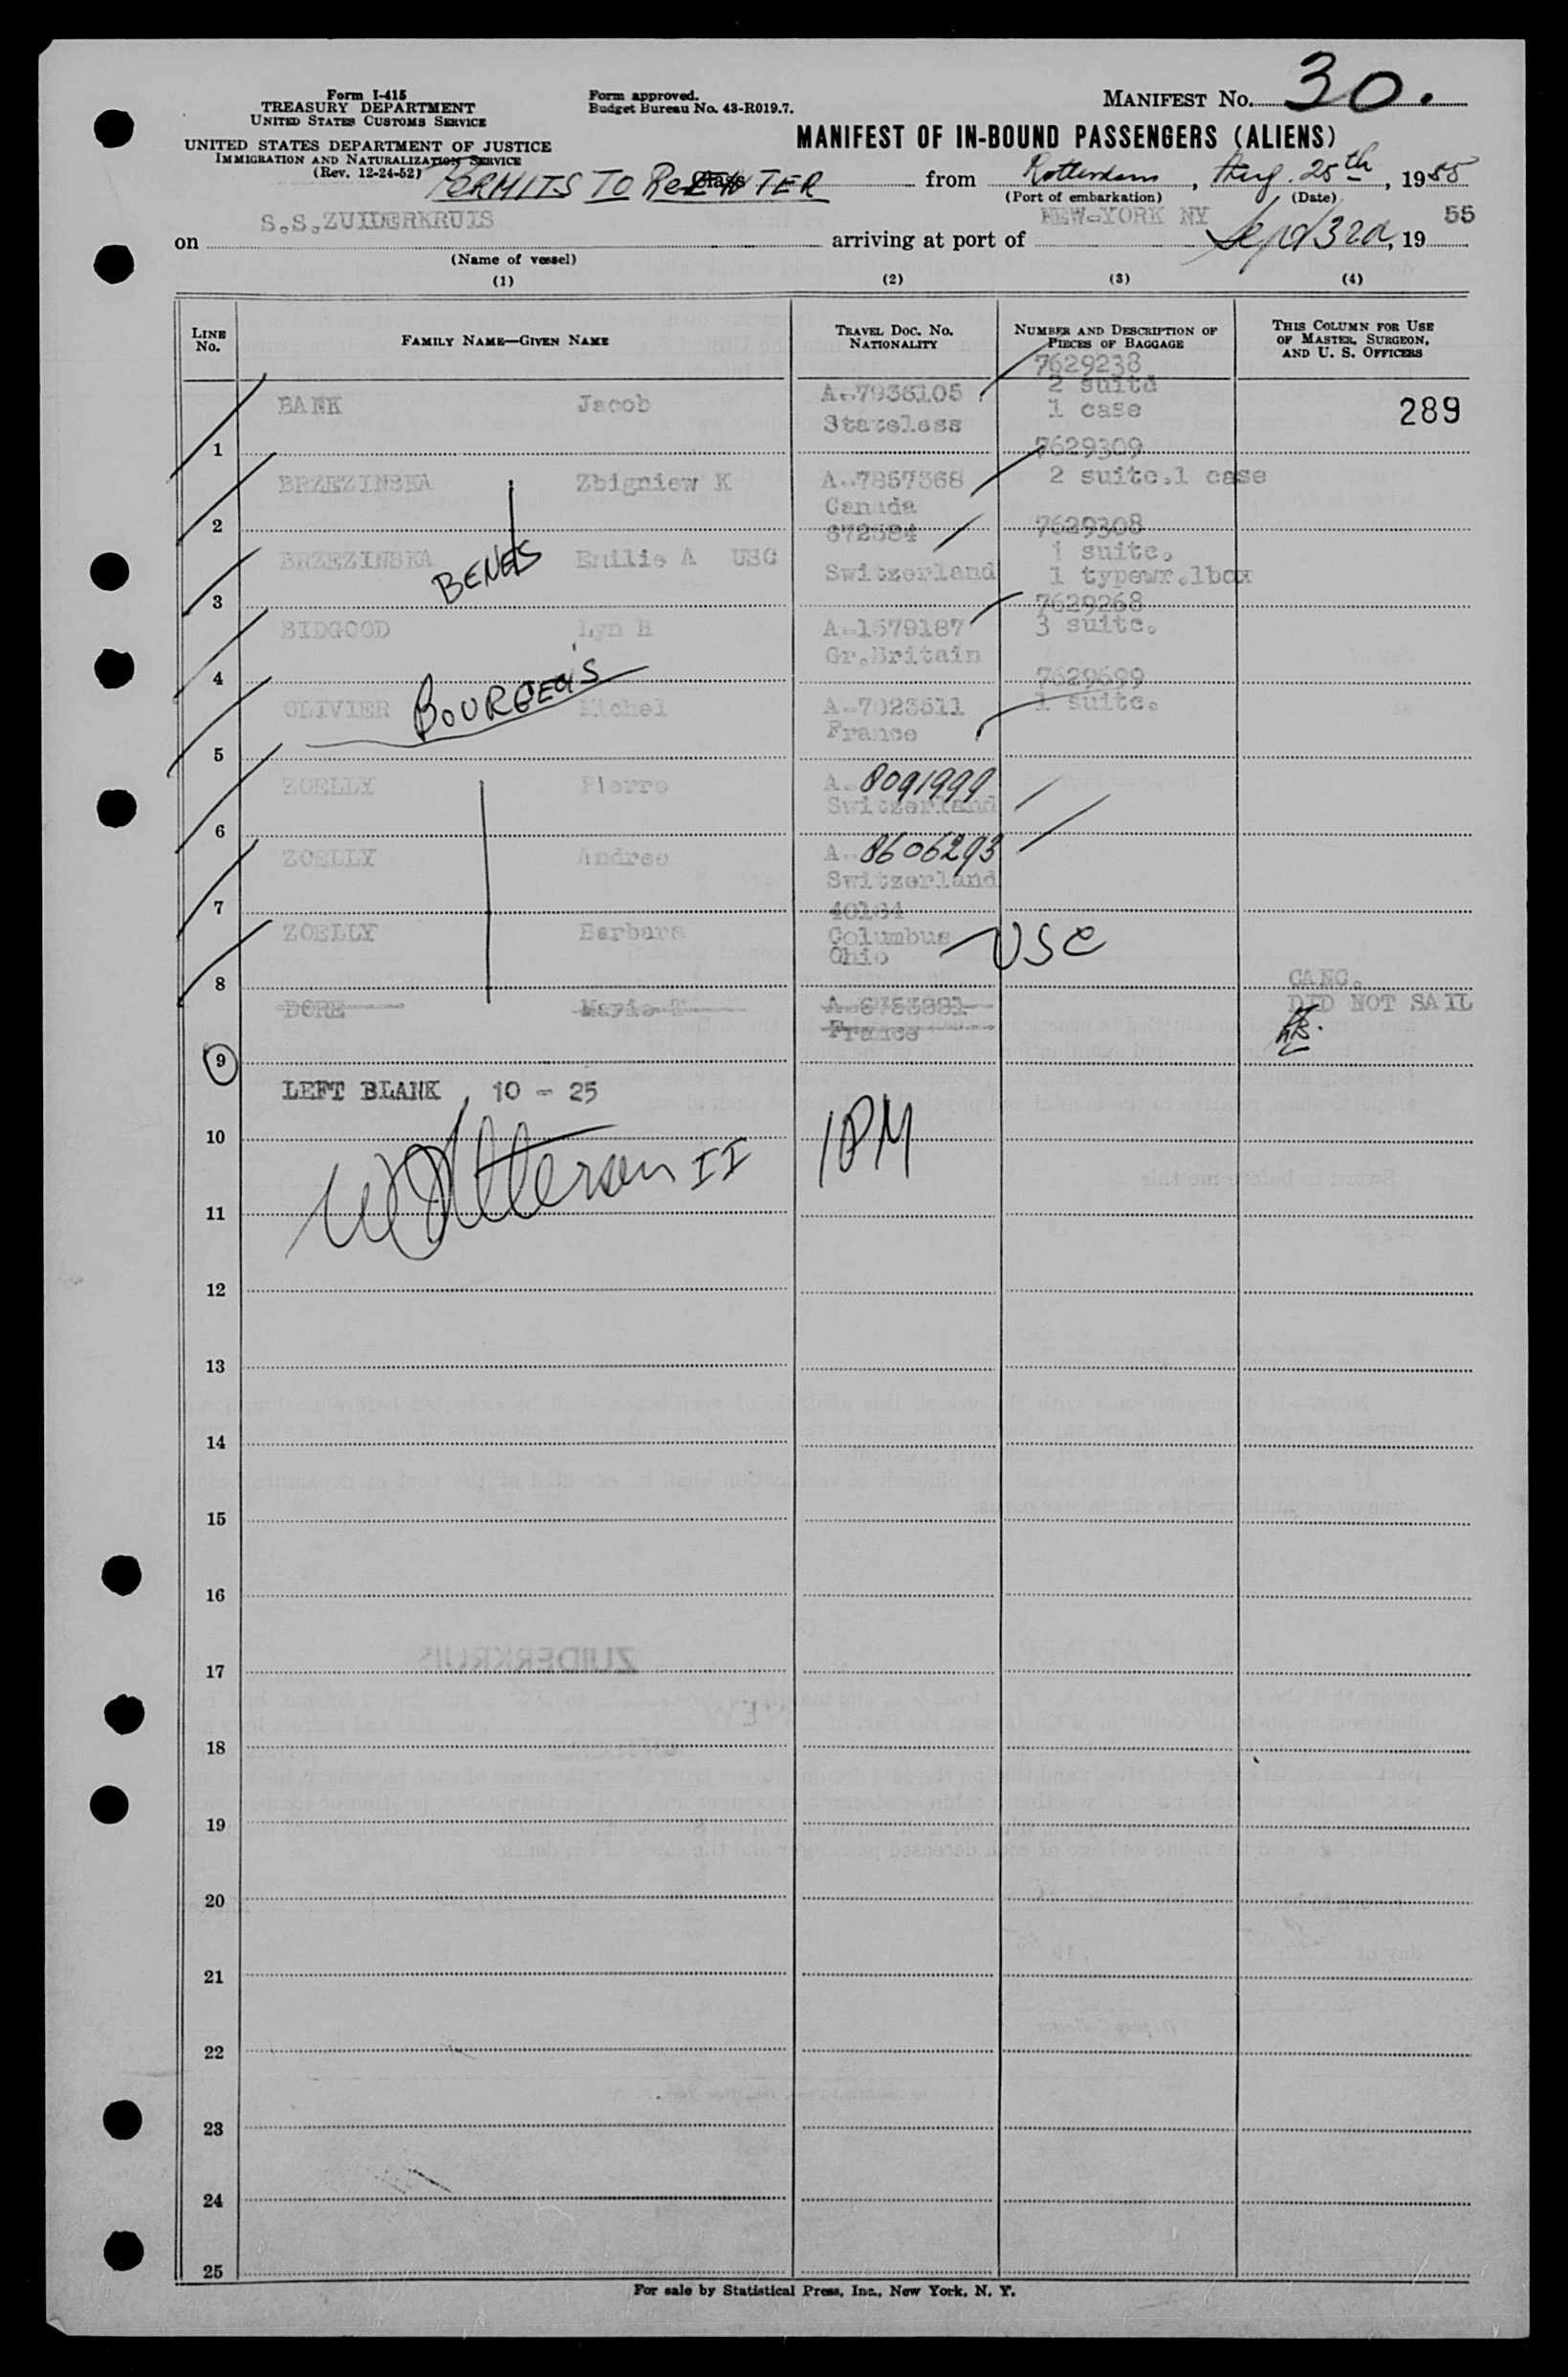 Form I-415
TREASURY DEPARTMENT
UNITED STATES CUSTOMS SERVICE
UNITED STATES DEPARTMENT OF JUSTICE
IMMIGRATION AND NATURALIZATION SERVICE
(Rev. 12-24-52)
Form approved.
Budget Bureau No. 43-R019.7.
MANIFEST No. 30.
MANIFEST OF IN-BOUND PASSENGERS (ALIENS)
PERMITS TO REENTER Class from Rotterdam, Aug. 25th, 1955
(Port of embarkation) (Date)
on S.S.ZUIDERKRUIS arriving at port of NEW-YORK NY Sept 3rd, 19 55
(Name of vessel)
(1) (2) (3) (4)
LINE No. FAMILY NAME—GIVEN NAME TRAVEL DOC. No. NATIONALITY NUMBER AND DESCRIPTION OF PIECES OF BAGGAGE THIS COLUMN FOR USE OF MASTER, SURGEON, AND U. S. OFFICERS
7629238
2 suitd
1 BANK Jacob A-7936105 1 case 289
Stateless
7629309
2 BRZEZINSKA Zbigniew K A-7857368 2 suitc.1 case
Canada
672584 7629308
1 suitc.
3 BRZEZINSKA BENES Emilie A USC Switzerland 1 typewr.1box
7629268
4 BIDGOOD Lyn B A-1579187 3 suitc.
Gr.Britain
7629699
5 OLIVIER BOURGEOIS Michel A-7023511 1 suitc.
France
6 ZOELLY Pierre A-8091999
Switzerland
7 ZOELLY Andree A-8606293
Switzerland
40184
8 ZOELLY Barbara Columbus USC
Ohio
CANC.
9 DORE Marie T A-6753881 DID NOT SAIL
France
LEFT BLANK, 10 - 25
10 IPM
11 II
12
13
14
15
16
17
18
19
20
21
22
23
24
25
For sale by Statistical Press, Inc., New York, N. Y.